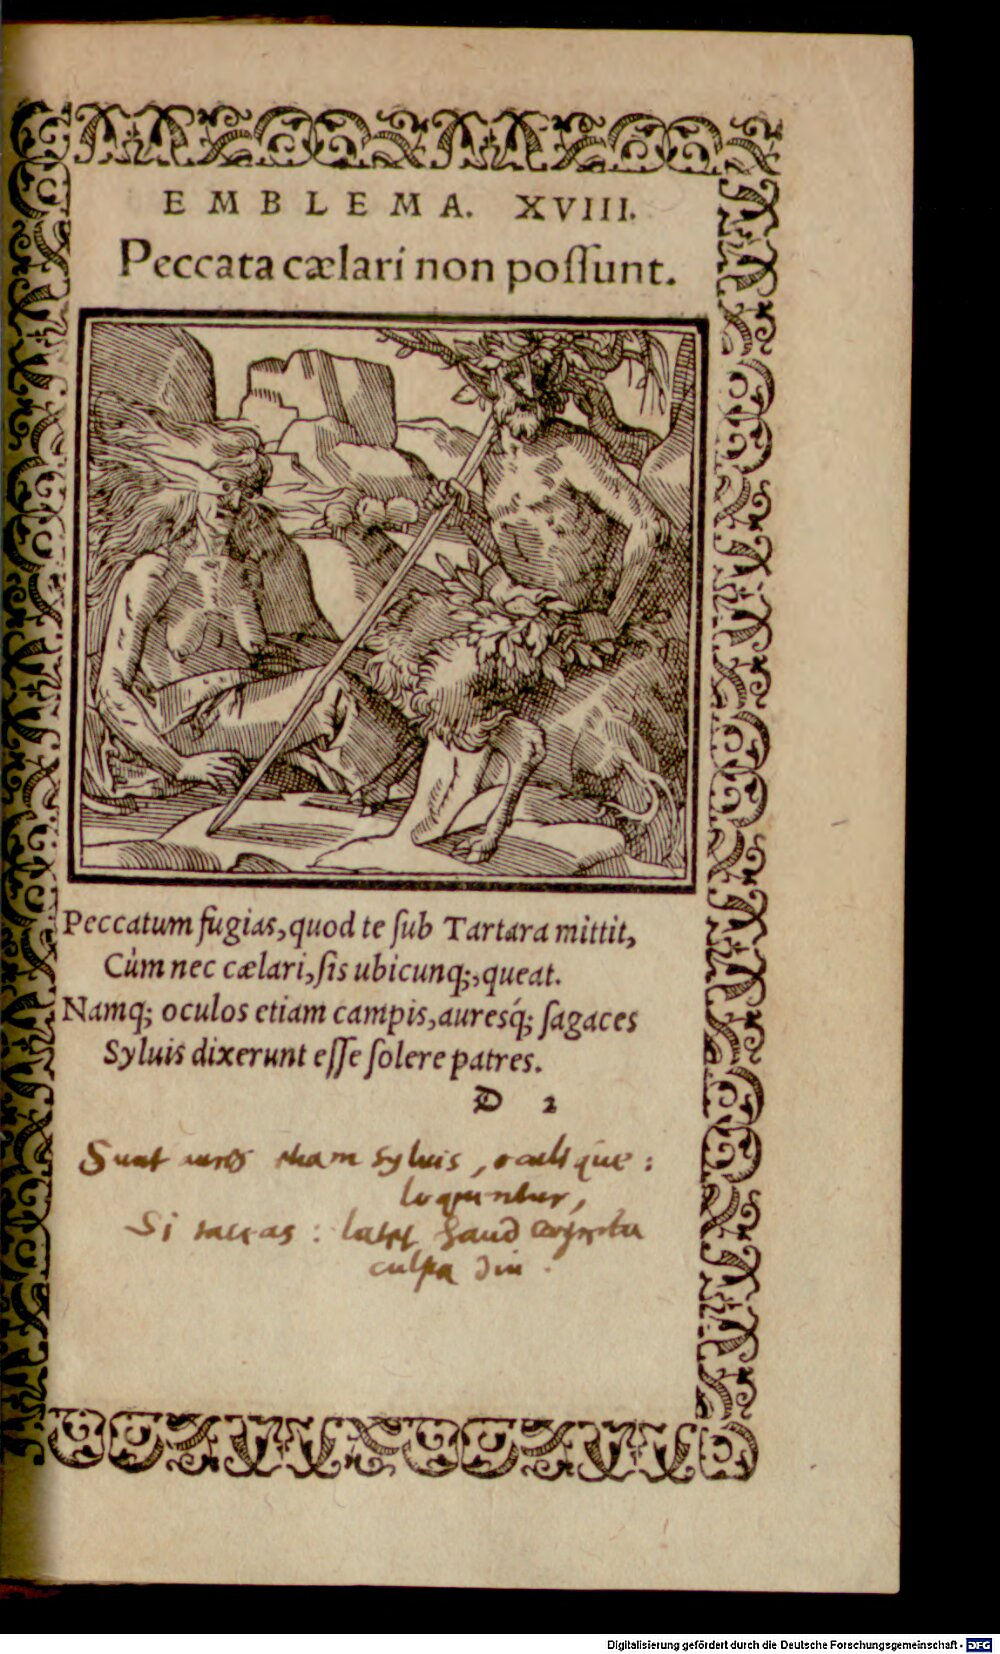 EMBLEMA. XVIII.
Peccata cælari non poſſunt.
Peccatum fugias, quod te ſub Tartara mittit,
Cùm nec cælari, ſis ubicunq;, queat.
Namq; oculos etiam campis, auresq́; ſagaces
Syluis dixerunt eſſe ſolere patres.
D 2
Sunt aures etiam sylvis, oculique:
loquuntur,
Si taceas: latet haud
culpa diu.
Digitalisierung gefördert durch die Deutsche Forschungsgemeinschaft - DFG